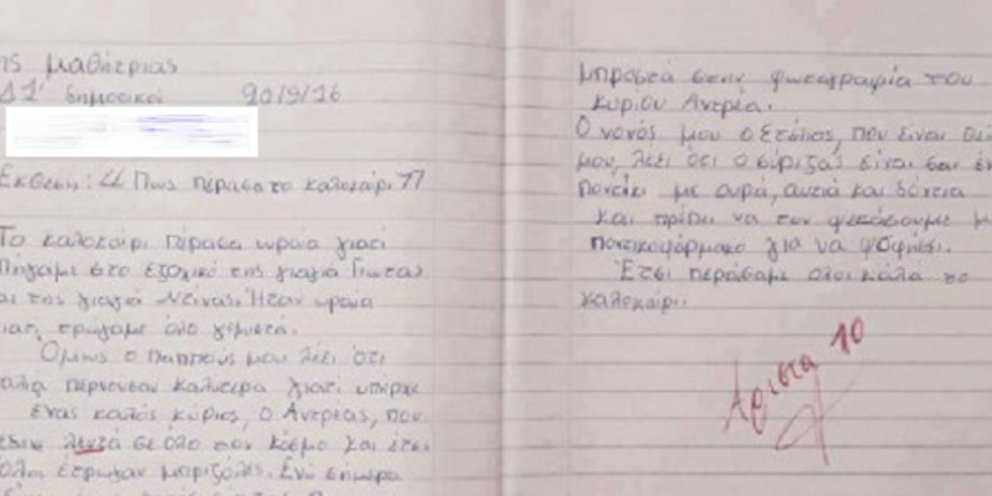 ης μαθήτριας
Δ1' δημοτικού 20/9/16
Εκθεση: "Πως πέρασα το καλοκαίρι"
Το καλοκαίρι πέρασα ωραία γιατί
Πήγαμε στο εξοχικό της γιαγιά Γιώτας
αι της γιαγιά Ντίνας. Ήταν ωραία
ιατί τρώγαμε όλο γεμιστά.
Όμως ο παππούς μου λέει ότι
αλιά περνούσαν καλυτερα γιατί υπήρχε
ένας καλός κύριος, ο Αντρέας, που
έδινε λεντά σε όλο τον κόσμο και έτσι
όλοι έτρωγαν μπριζόλες. Ενώ σήμερα
μπροστά στην φωτογραφία του
κυριου Αντρέα.
Ο νονός μου ο Στέλιος, που είναι θεί
μου, λέει ότι ο σύριζας είναι σαν έν
ποντίκι με ουρά, αυτιά και δόντια
και πρέπει να τον ψεκάσουμε μ
ποντικοφάρμακο για να ψοφήσει.
Έτσι περάσαμε όλοι καλά το
καλοκαίρι.
Άριστα 10